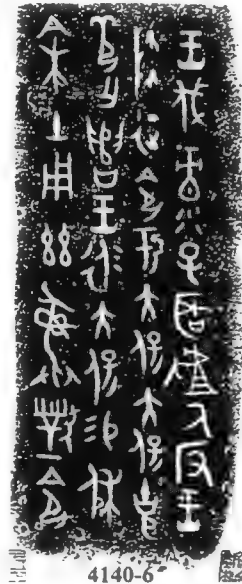 王伐彔子𦔻𠭯氒反王
降征令于大保大保克
苟亡遣王永大保易休
余土用茲彝對令
4140-6